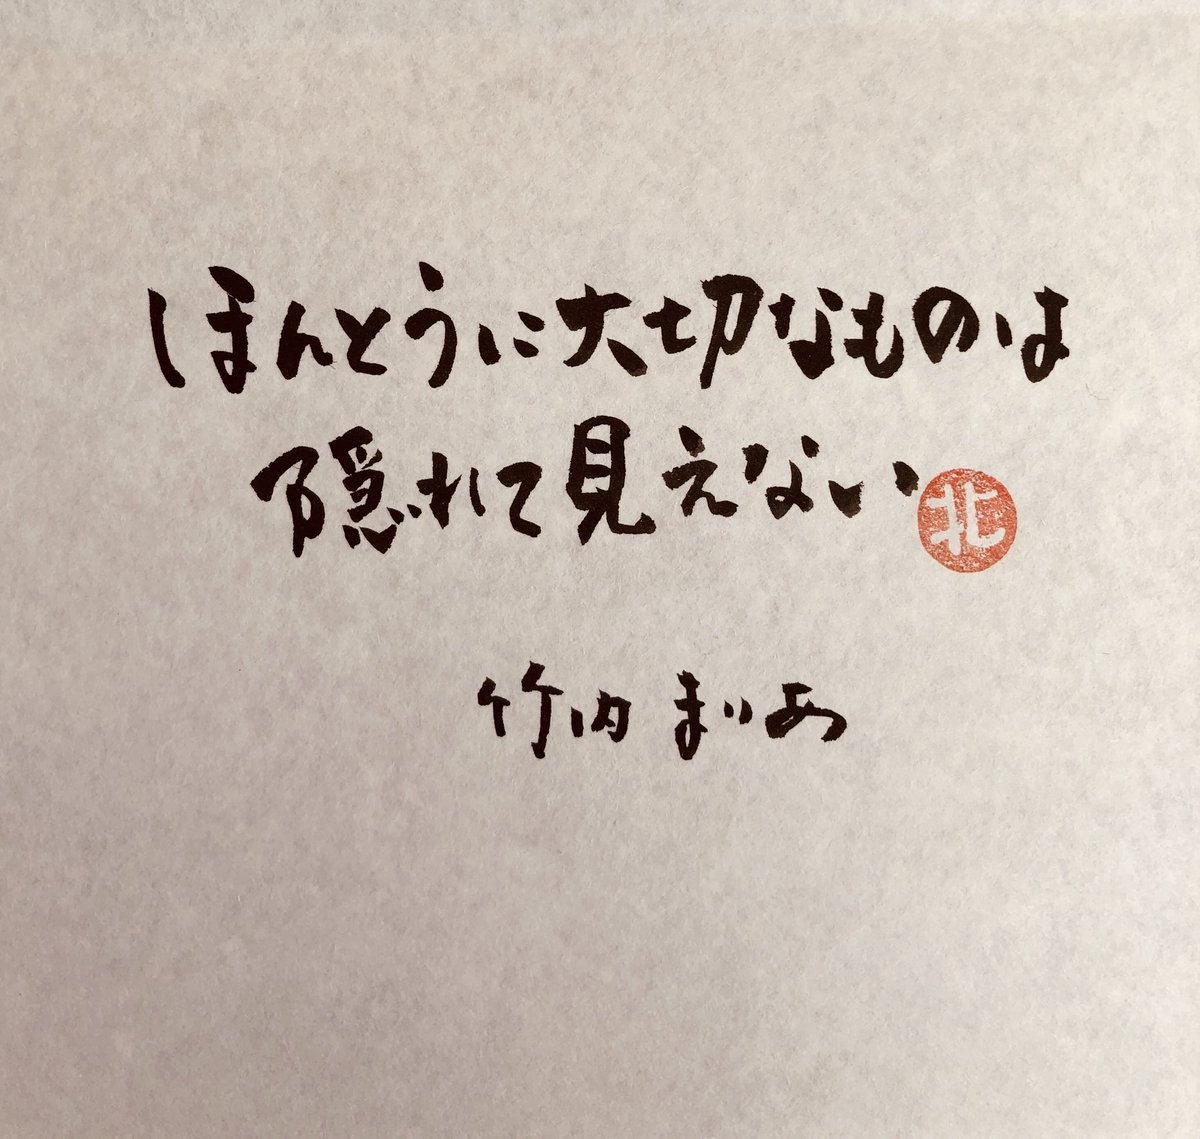 ほんとうに大切なものは
隠れて見えない
北
竹内まりあ